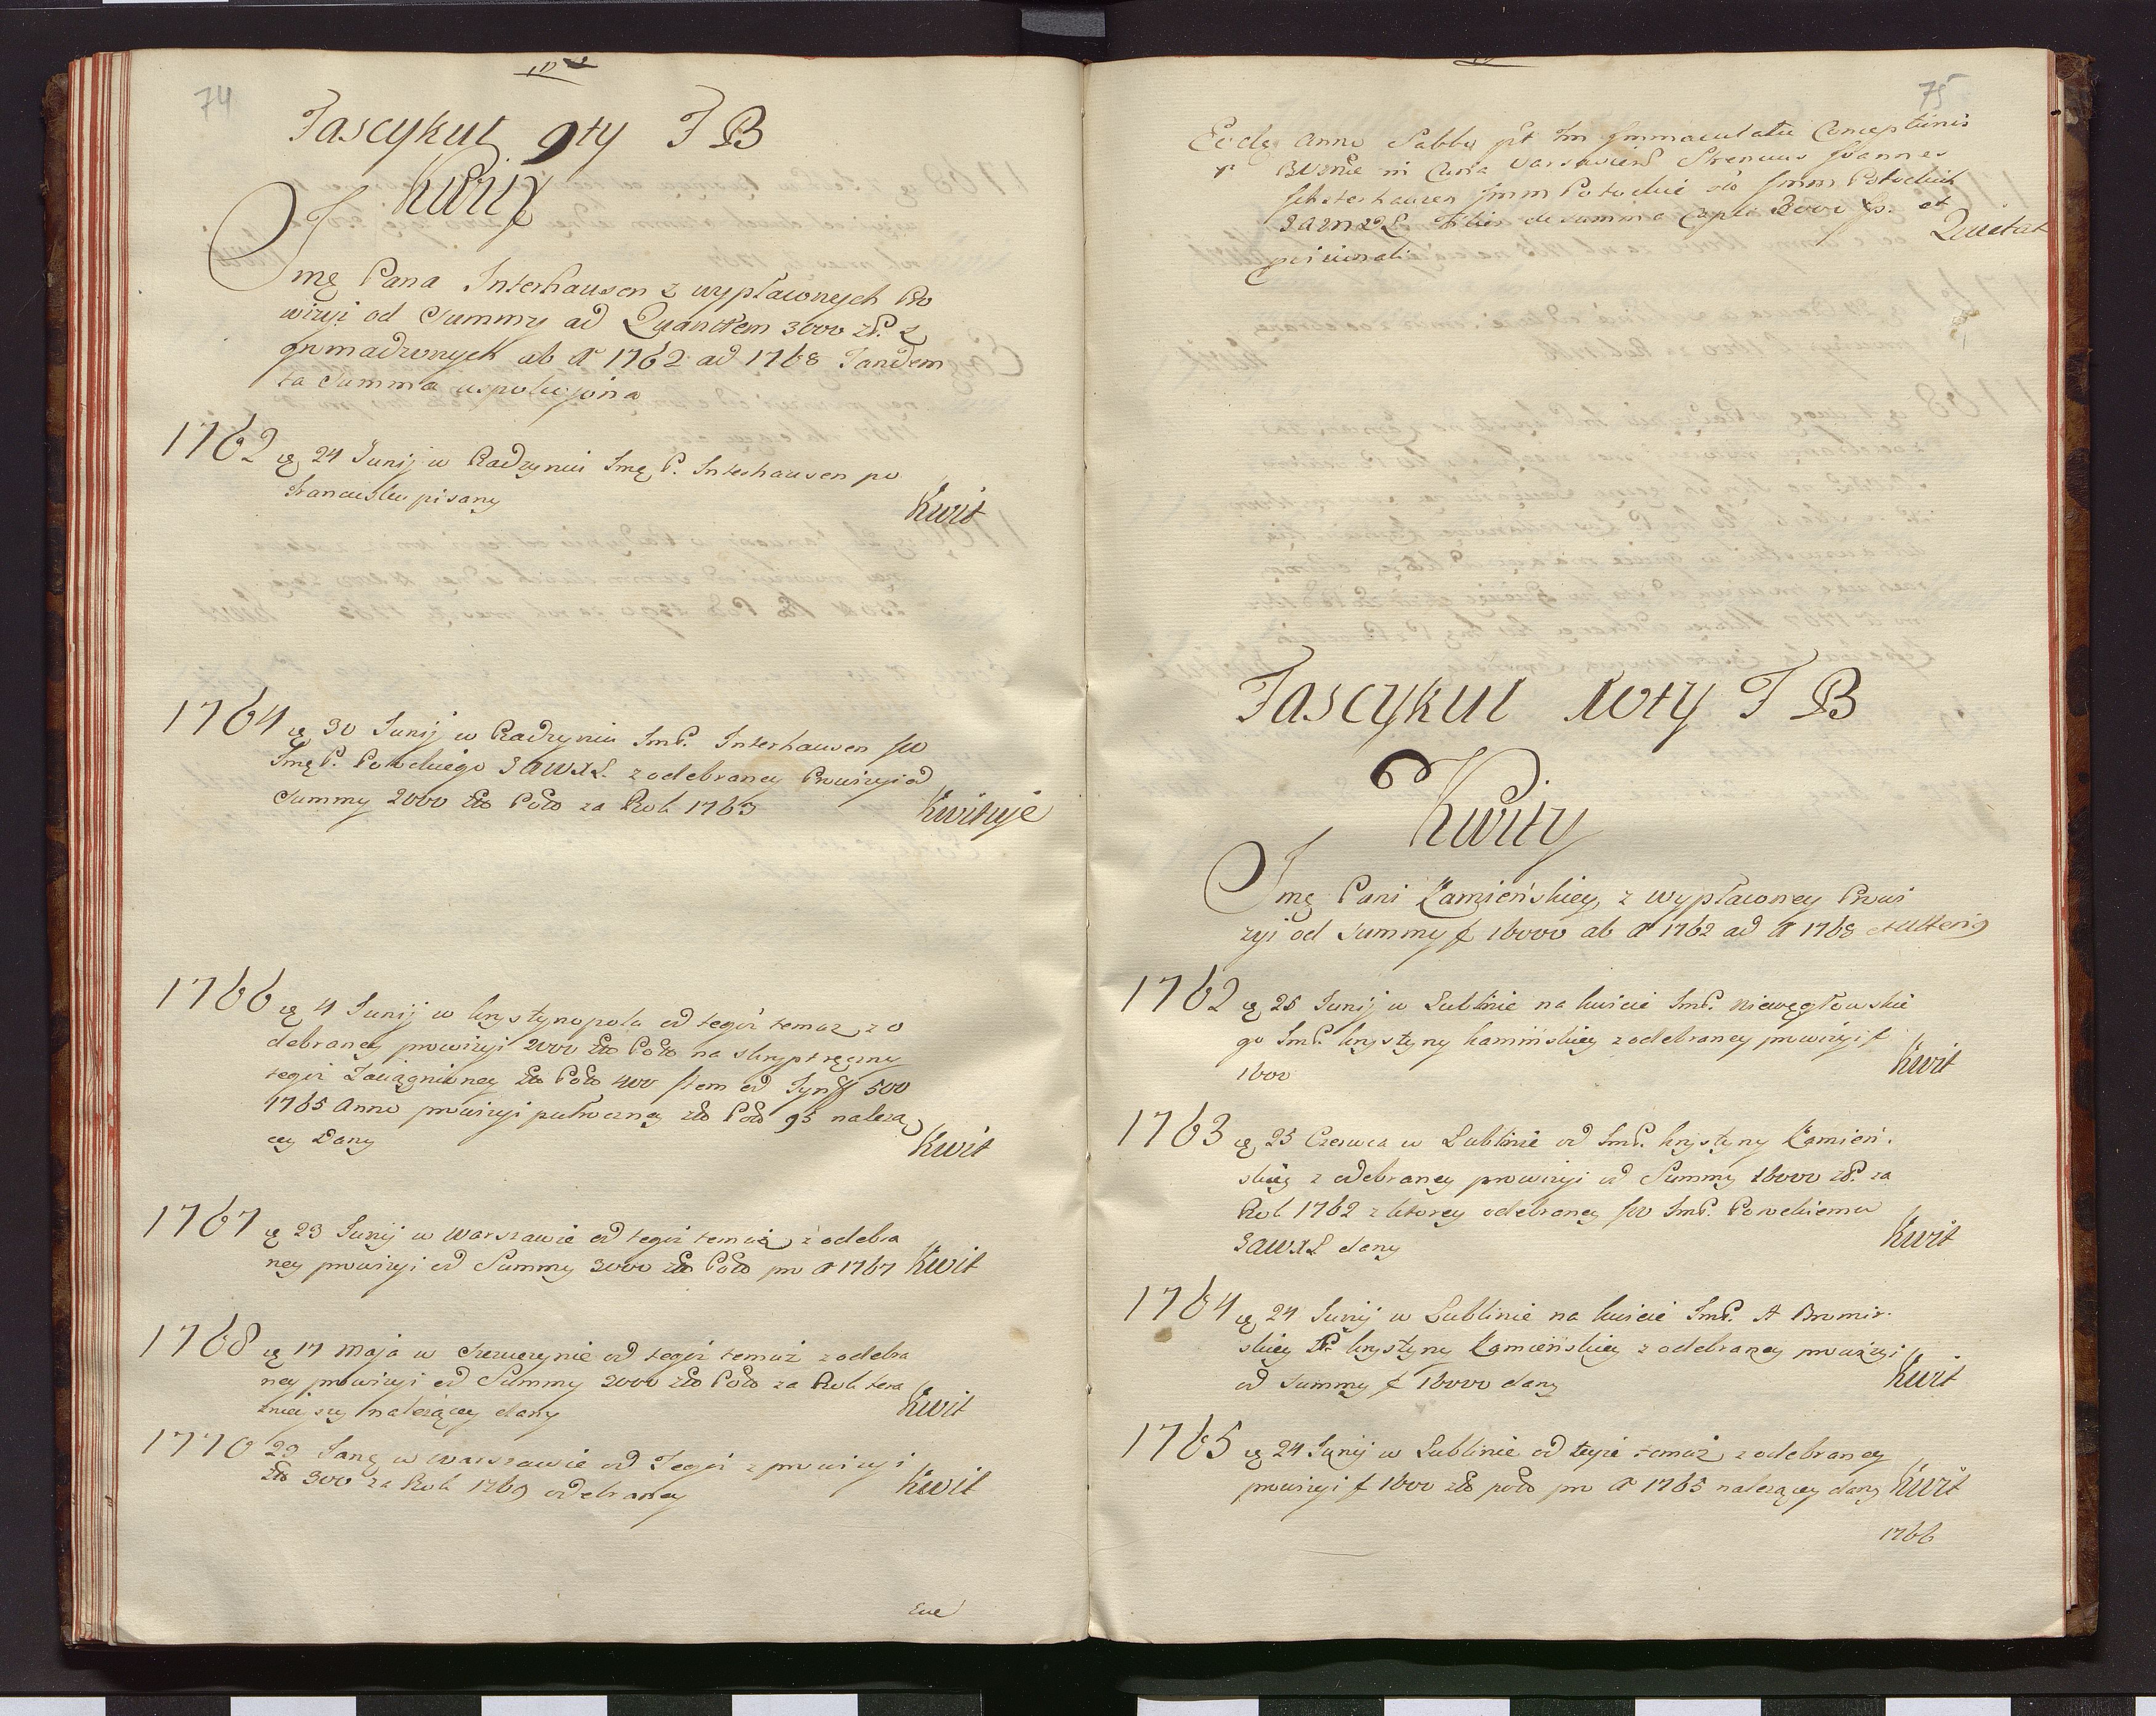 74
Fascykuł 9ty F B
Kwity
Jmę Pana Interhausen z wypłaconych Pro
wizyi od Summy ad Quantem 3000 zł. z
gromadzonych ab Ao 1762 ad 1768 Tandem
ta Summa uspokojona
1762 24 Junij w Radzyniu Jmę P. Interhausen po
francusku pisany
Kwit
1764 30 Junij w Radzyniu JmP. Interhausen
JmęP. Potockiego SAWXL z odebraney Prowizyi od
Summy 2000 Zło Polo za Rok 1763 Kwituje
1766 4 Junij w Krystynopolu od tegoż temuz z o
debraney prowizyi 2000 Zło Polo na skrypt ręczny
tegoż Zaciągnioney Zło Polo 400 od Tynff 500
1765 Anno prowizyi pułroczney Zło Polo 95 należą
cey Dany
Kwit
1767 23 Junij w Warszawie od tegoż temuż z odebra
ney prowizyi od Summy 3000 zło Polo pro Ao 1767 Kwit
1768 17 Maja w od tegoż temuż z odebra
ney prowizyi od Summy 3000 zło Polo za Rok tera
znieyszy należącey dany Kwit
1770 29 w Warszawie od Tegoż z prowizyi
Zło 300 za Rok 1769 odebraney Kwit
75
Anno Sabbo pt Im Immaculatae Conceptionis
BVMae in Curia Varsavien Strenuus Joannes
Imm Potockie Imm Potockich
de summa Capli 3000 fp. et
Quietat
Fascykuł 10ty F B
Kwity
Jmę Pani Kamieńskiey z wypłaconey Prowi
zyi od Summy f 16000 ab Ao 1762 ad Ao 1768
1762 25 Junij w Lublinie na kwicie JmP. Niewęgłowskie
go JmP. Krystyny Kamińskiey z odebraney prowizyi f
1600 Kwit
1763 25 Czerwca w Lublinie od JmP. Krystyny Kamień.
skiey z odebraney prowizyi od Summy 16000 zP. za
Rok 1762 z ktorey odebraney JmP. Potockiemu
SAWXL dany Kwit
1764 24 Junij w Lublinie na kwicie JmP. A Bromir.
skiey P. Krystyny Kamieńskiey z odebraney prowizyi
od Summy f 16000 dany Kwit
1765 24 Junij w Lublinie od teyże temuż z odebraney
prowizyi f 1600 zło polo pro Ao 1765 należącey dany Kwit
1766